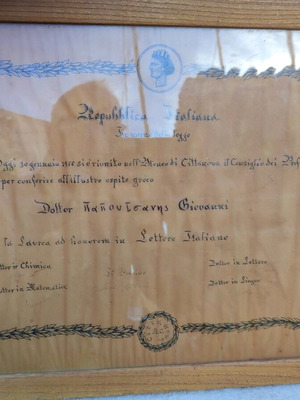 Repubblica Italiana
Oggi si è riunito nell'Ateneo di Cittanova il Consiglio dei
per conferire all'illustre ospite greco
Dottor Παπουτσανης Giovanni
la Laurea ad honorem in Lettere Italiane
in Chimica
Dottor in Lettere
in Matematica
Dottor in Lingue